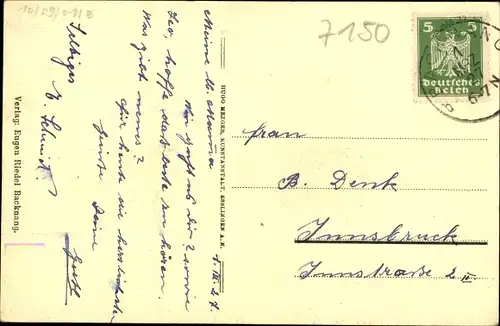 10/29/01/B
7150
5 5
Deutsches
Reich
6-7 N
1. III. 27.
Meine lb. Mama
Wie geht es Dir? sowie
Leo, hoffe das beste zu hören.
Was gibt neues?
Für heute die herzlichsten
Grüße Deine
Frau
B. Denk
Innsbruck
Innstraße 2 II
HUGO MEZGER, KUNSTANSTALT, ESSLINGEN A.N.
Verlag: Eugen Riedel Backnang.